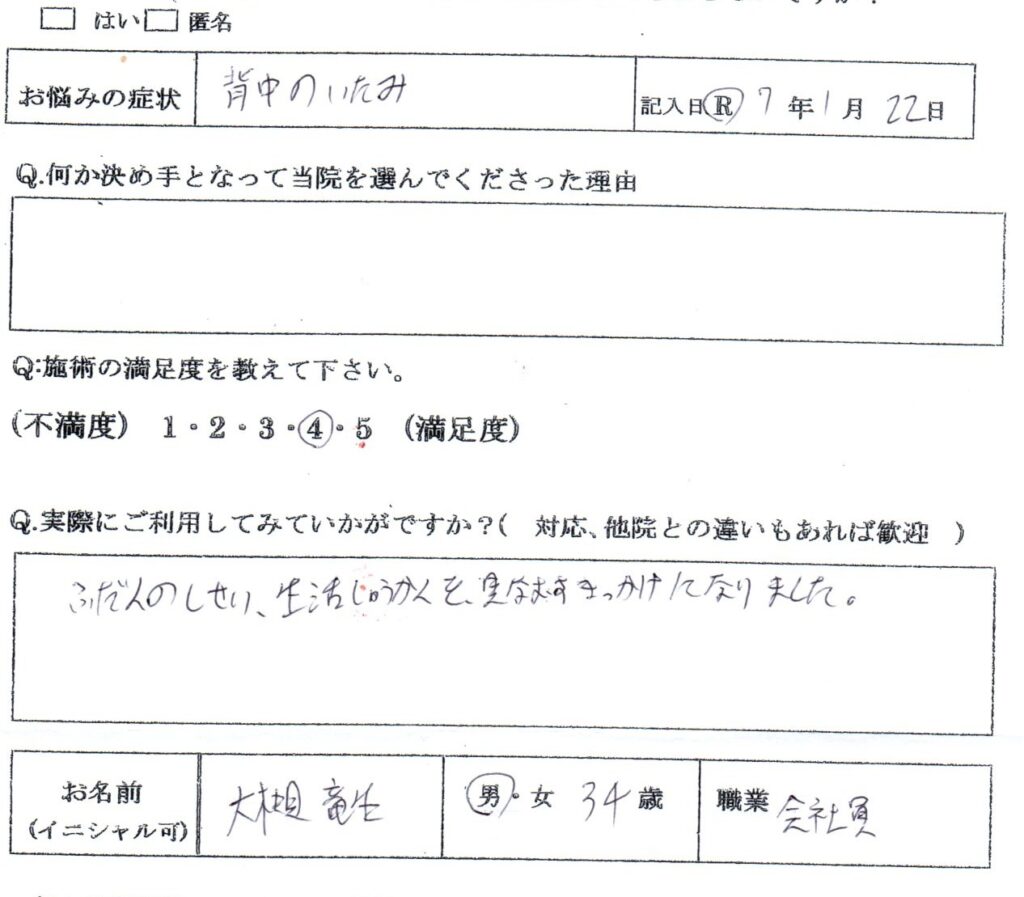 はい 匿名
お悩みの症状 背中のいたみ 記入日 R 7年1月22日
Q.何か決め手となって当院を選んでくださった理由
Q:施術の満足度を教えて下さい。
(不満度) 1・2・3・4・5 (満足度)
Q.実際にご利用してみていかがですか?( 対応、他院との違いもあれば歓迎 )
ふだんのしせい、生活しゅうかんを、見なおすきっかけになりました。
お名前 大槻 竜生 男・女 34歳 職業 会社員
(イニシャル可)